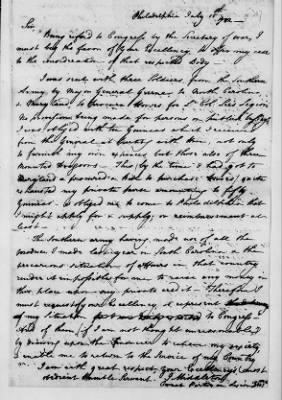 Philadelphia July 15th 1782
Sir
Being refered to Congress by the Secretary of war, I
must beg the favor of your Excellency, to offer my case
to the consideration of that respected Body
I was sent with three Soldiers from the Southern
Army, by Major General Greene, to North Carolina,
& Maryland, to procure Horses for Lt. Col. Lee's Legion
No provisions being made for persons on publick
I was obliged with ten Guineas which I received
from the General at parting with him, not only
to furnish my own expences but those also of three
mounted Dragoons. This, by the time I had got to
Maryland & procured Horses quite
exhausted my private purse amounting to fifty
Guineas & obliged me to come to Philadelphia that
I might apply for a supply, or reimbursement at
least
The Southern army having made use of all the
monies I made last year in South Carolina &
precarious situation of affairs in that country
render it impossible for me to raise any money in
this place upon my private credit. I therefore
must request your Excellency to represent
of my situation to Congress &
if I am not thought unreasonable
by drawing upon the Financier to relieve my anxiety
& enable me to return to the Service of my Country
I am with great respect your Excellency's most
obedient humble Servant J Middleton
Cornet Partizan Legion